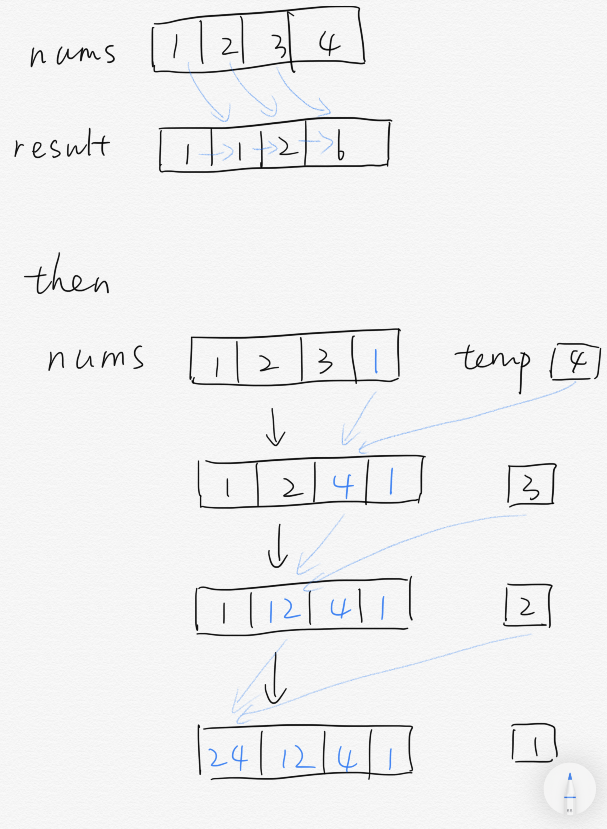 nums 1 2 3 4
result 1 → 1 → 2 → 6
then
nums 1 2 3 1 temp 4
1 2 4 1 3
1 12 4 1 2
24 12 4 1 1